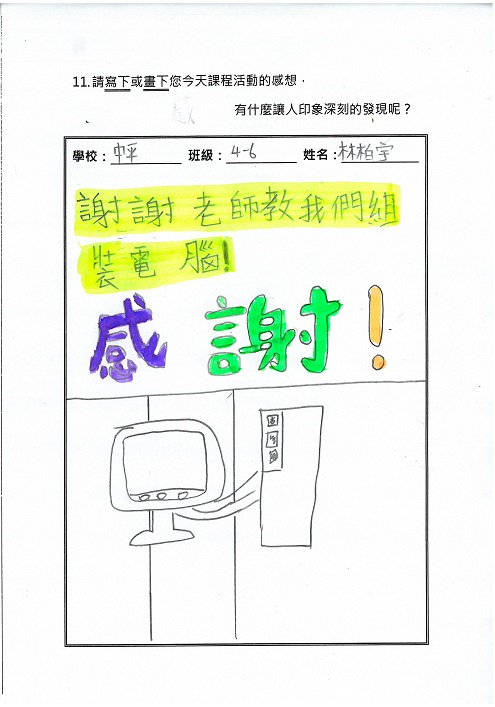 11.請寫下或畫下您今天課程活動的感想，
有什麼讓人印象深刻的發現呢？
學校：中平 班級：4-6 姓名：林柏宇
謝謝老師教我們組
裝電腦!
感謝!